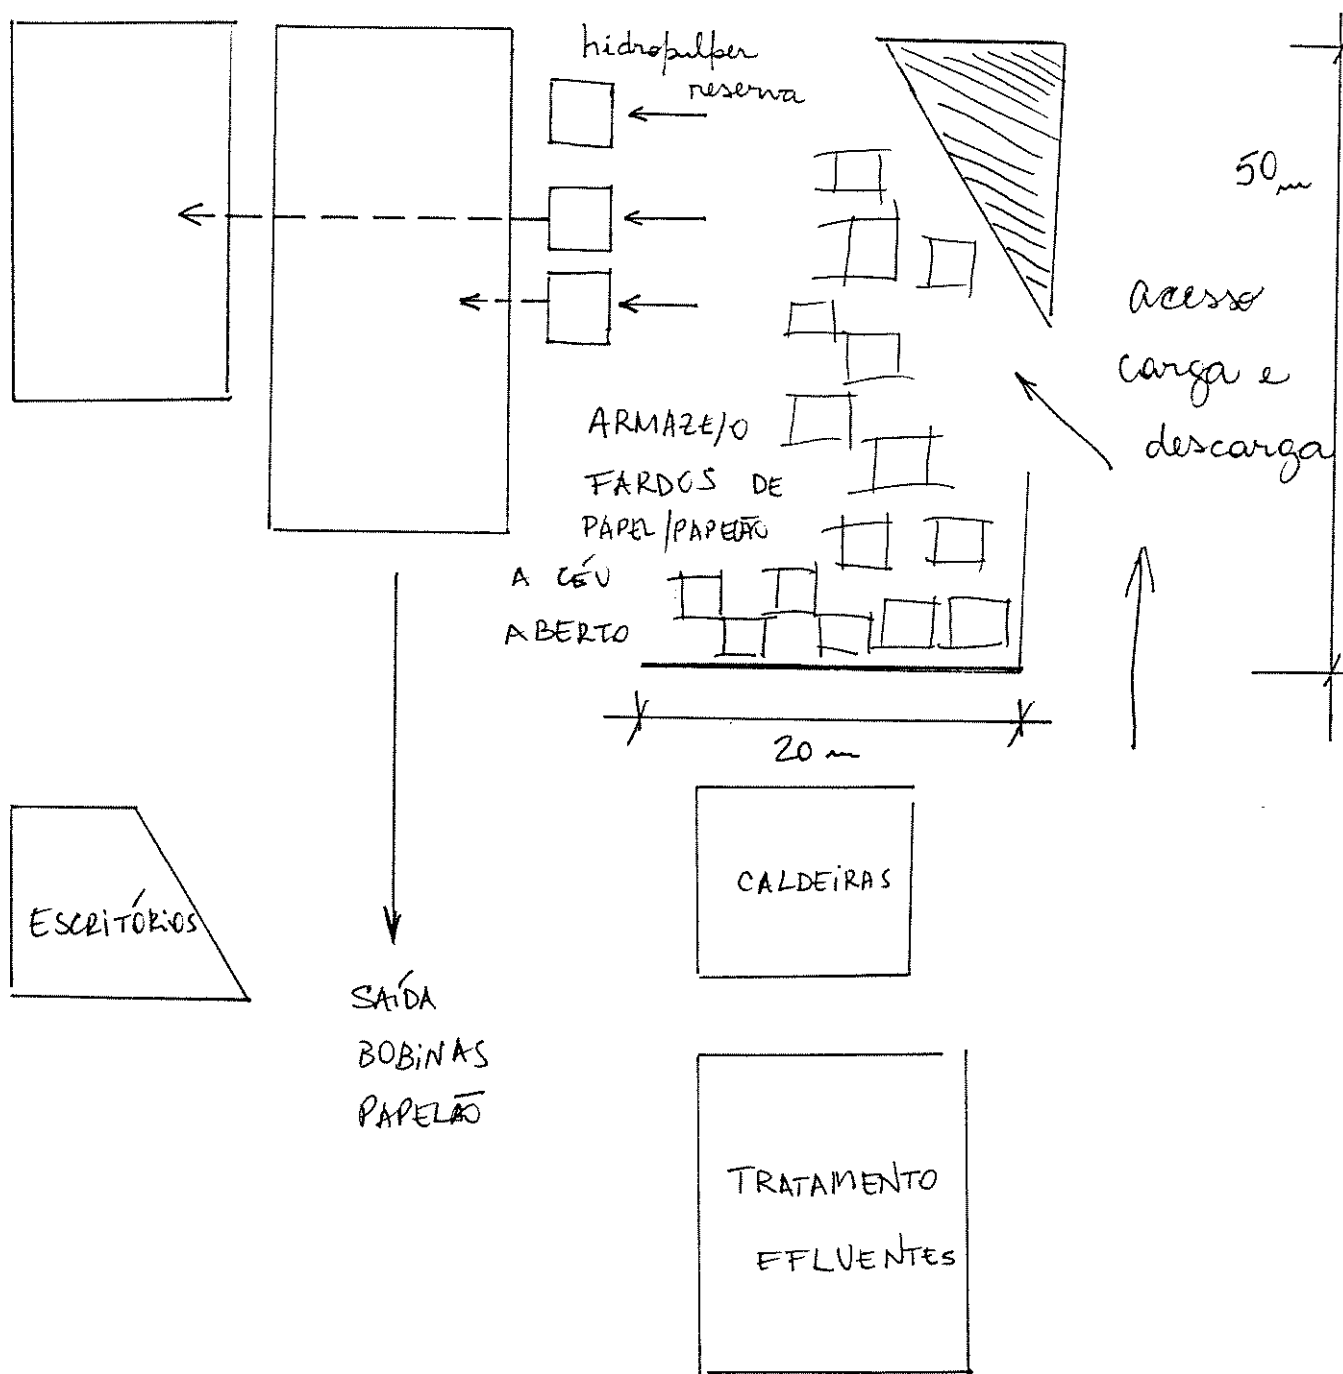 hidropulper
reserva
50 m
acesso
carga e
descarga
ARMAZE/O
FARDOS DE
PAPEL/PAPELÃO
A CÉU
ABERTO
20 m
CALDEIRAS
ESCRITÓRIOS
SAÍDA
BOBINAS
PAPELÃO
TRATAMENTO
EFLUENTES